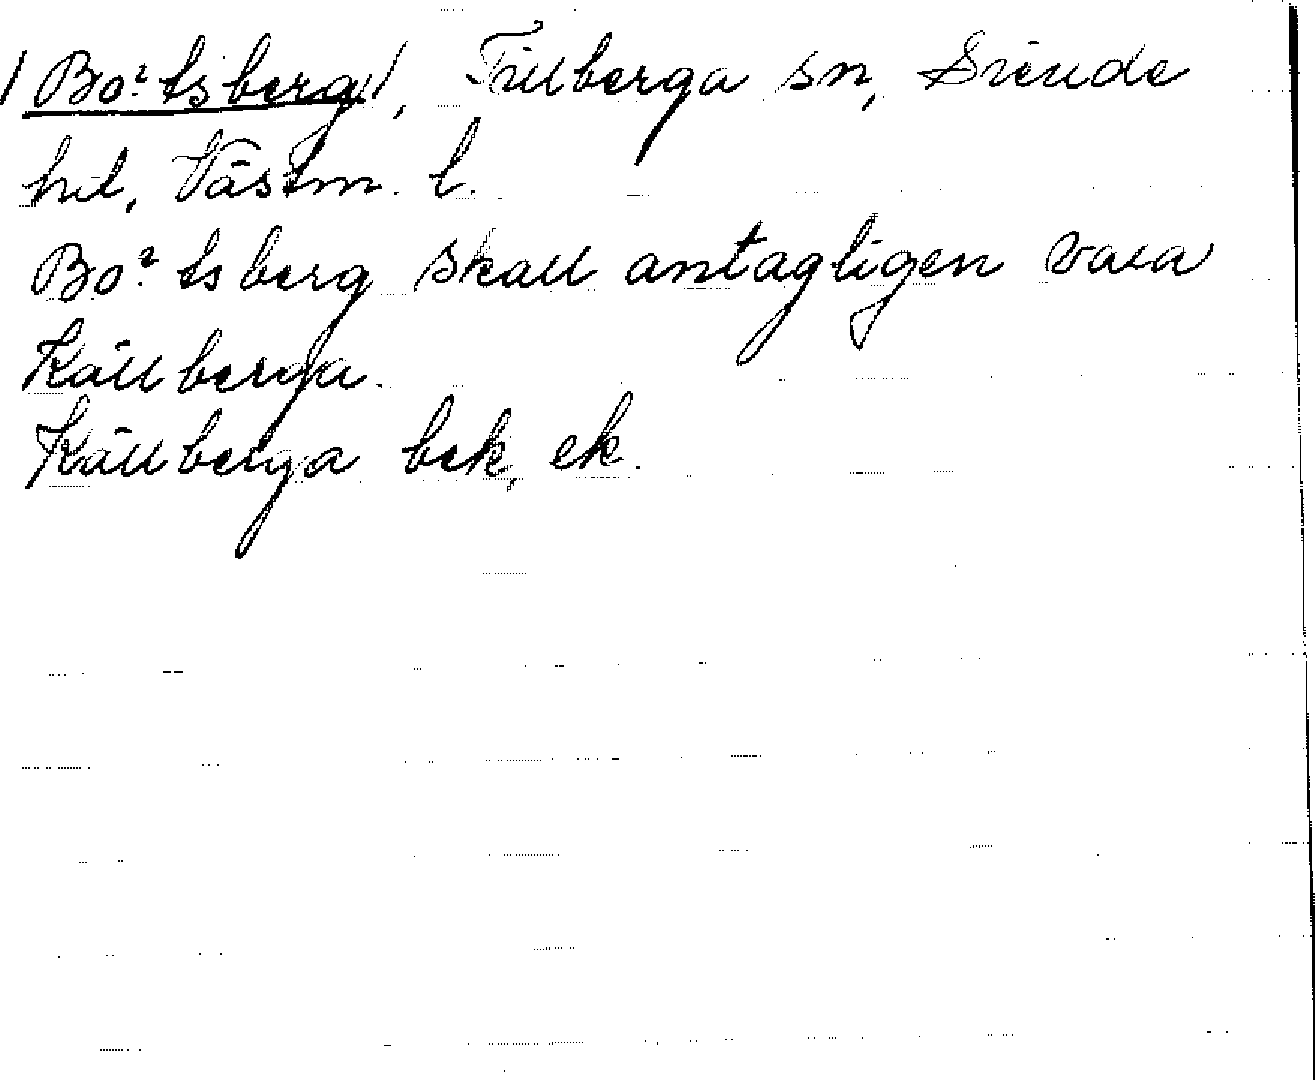 /Bo² tsberg/, Tillberga sn, Siende
hd, Västm. l.
Bo² tsberg skall antagligen vara
Källberga.
Källberga bek, ek.